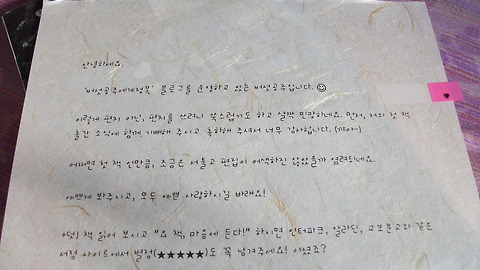 안녕하세요.
'버섯공주세계정복' 블로그를 운영하고 있는 버섯공주입니다. ☺
이렇게 편지 아닌, 편지를 쓰려니 쑥스럽기도 하고 살짝 민망하네요. 먼저, 저의 첫 책
출간 소식에 함께 기뻐해 주시고 축하해 주셔서 너무 감사합니다.
어쩌면 첫 책 인만큼, 조금은 서툴고 편집이 어색하진 않았을까 염려되네요.
예쁘게 봐주시고, 모두 예쁜 사랑하시길 바래요!
+덧) 책 읽어 보시고 "요 책, 마음에 든다!" 하시면 인터파크, 알라딘, 교보문고와 같은
서점 사이트에서 별점(★★★★★)도 꼭 남겨주세요! 아셨죠?